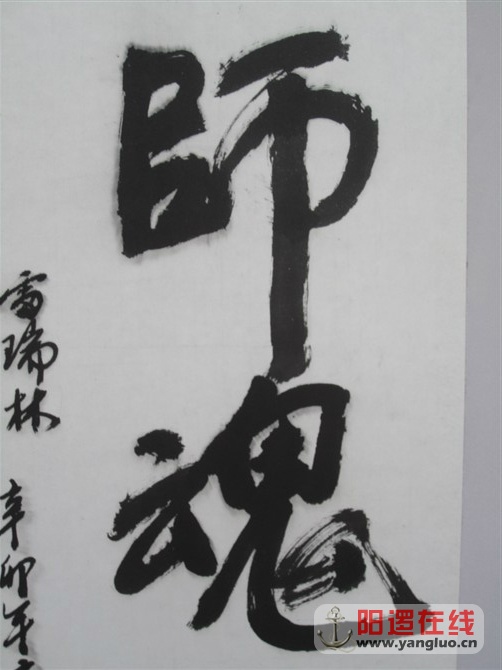 師魂
雷瑞林 辛卯年
阳逻在线
www.yangluo.cn